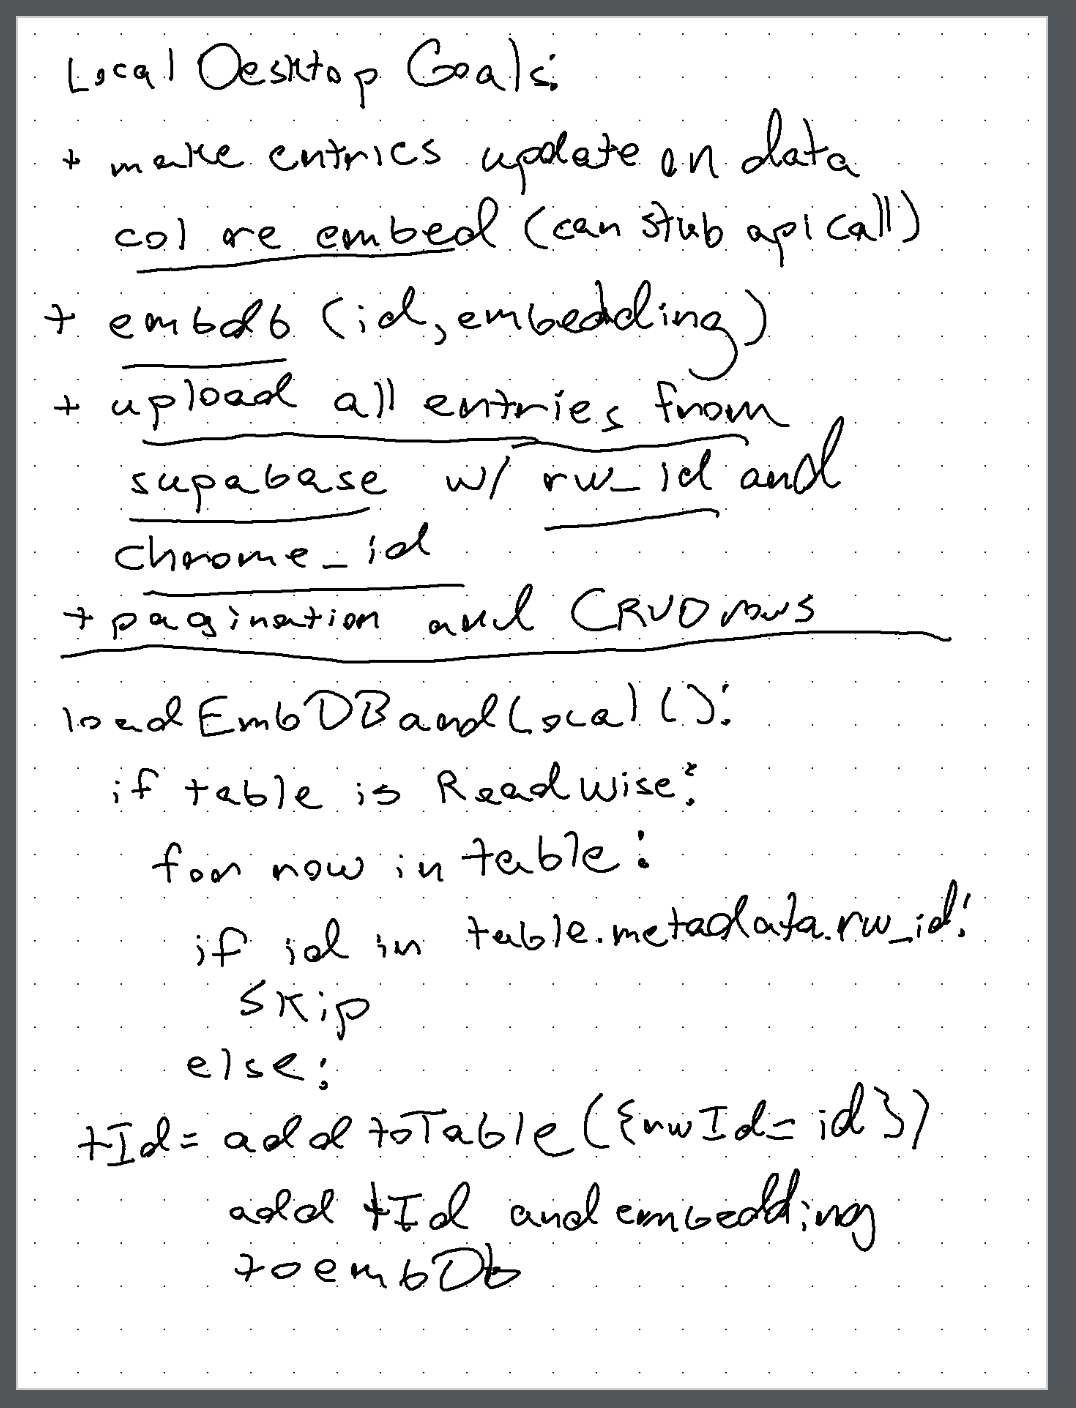 Local Desktop Goals:
+ make entries update on data
col re embed (can stub api call)
+ embdb (id, embedding)
+ upload all entries from
supabase w/ rw_id and
chrome_id
+ pagination and CRUD rows
loadEmbDBandLocal():
if table is Readwise:
for row in table:
if id in table.metadata.rw_id:
skip
else:
tId = add toTable({rwId= id})
add tId and embedding
to embDb